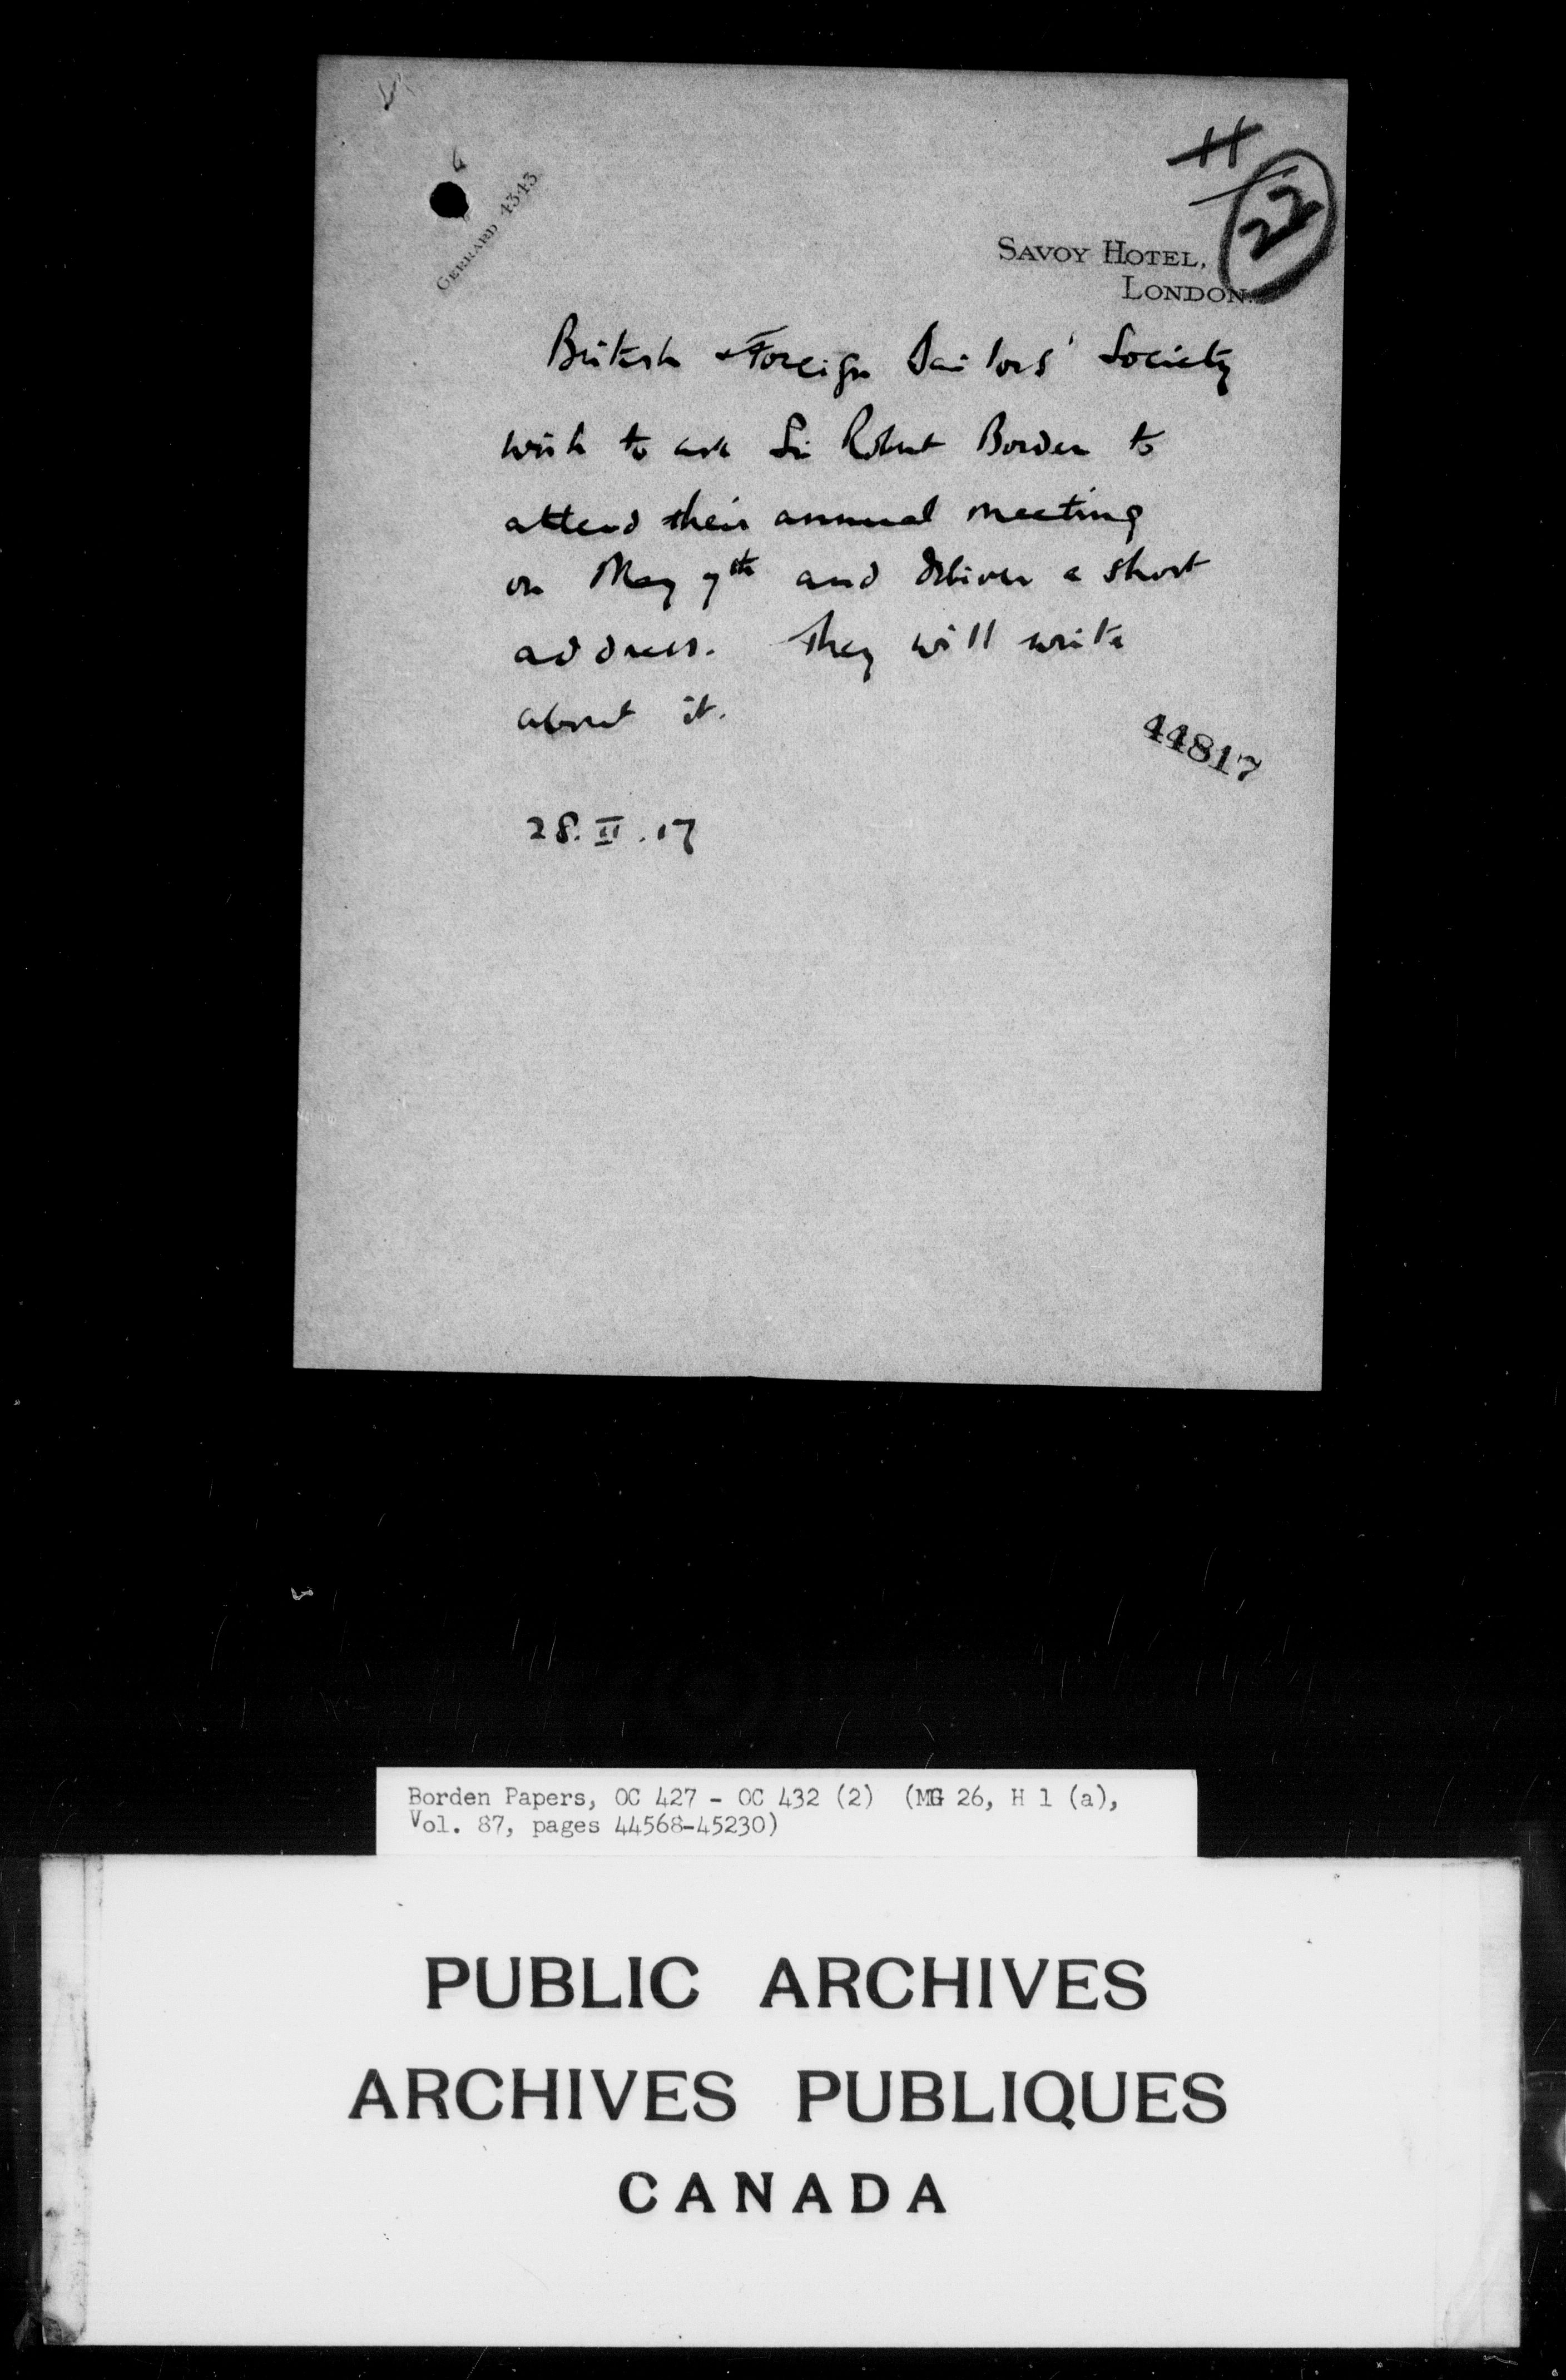 11
22
GERRARD 4343
SAVOY HOTEL,
LONDON.
British & Foreign Sailors' Society
wish to ask Sir Robert Borden to
attend their annual meeting
on May 7th and deliver a short
address. They will write
about it.
44817
28.II.17
Borden Papers, OC 427 - OC 432 (2) (MG 26, H 1 (a),
Vol. 87, pages 44568-45230)
PUBLIC ARCHIVES
ARCHIVES PUBLIQUES
CANADA